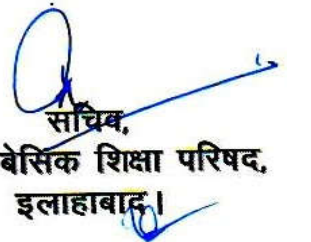 सचिव,
बेसिक शिक्षा परिषद,
इलाहाबाद।